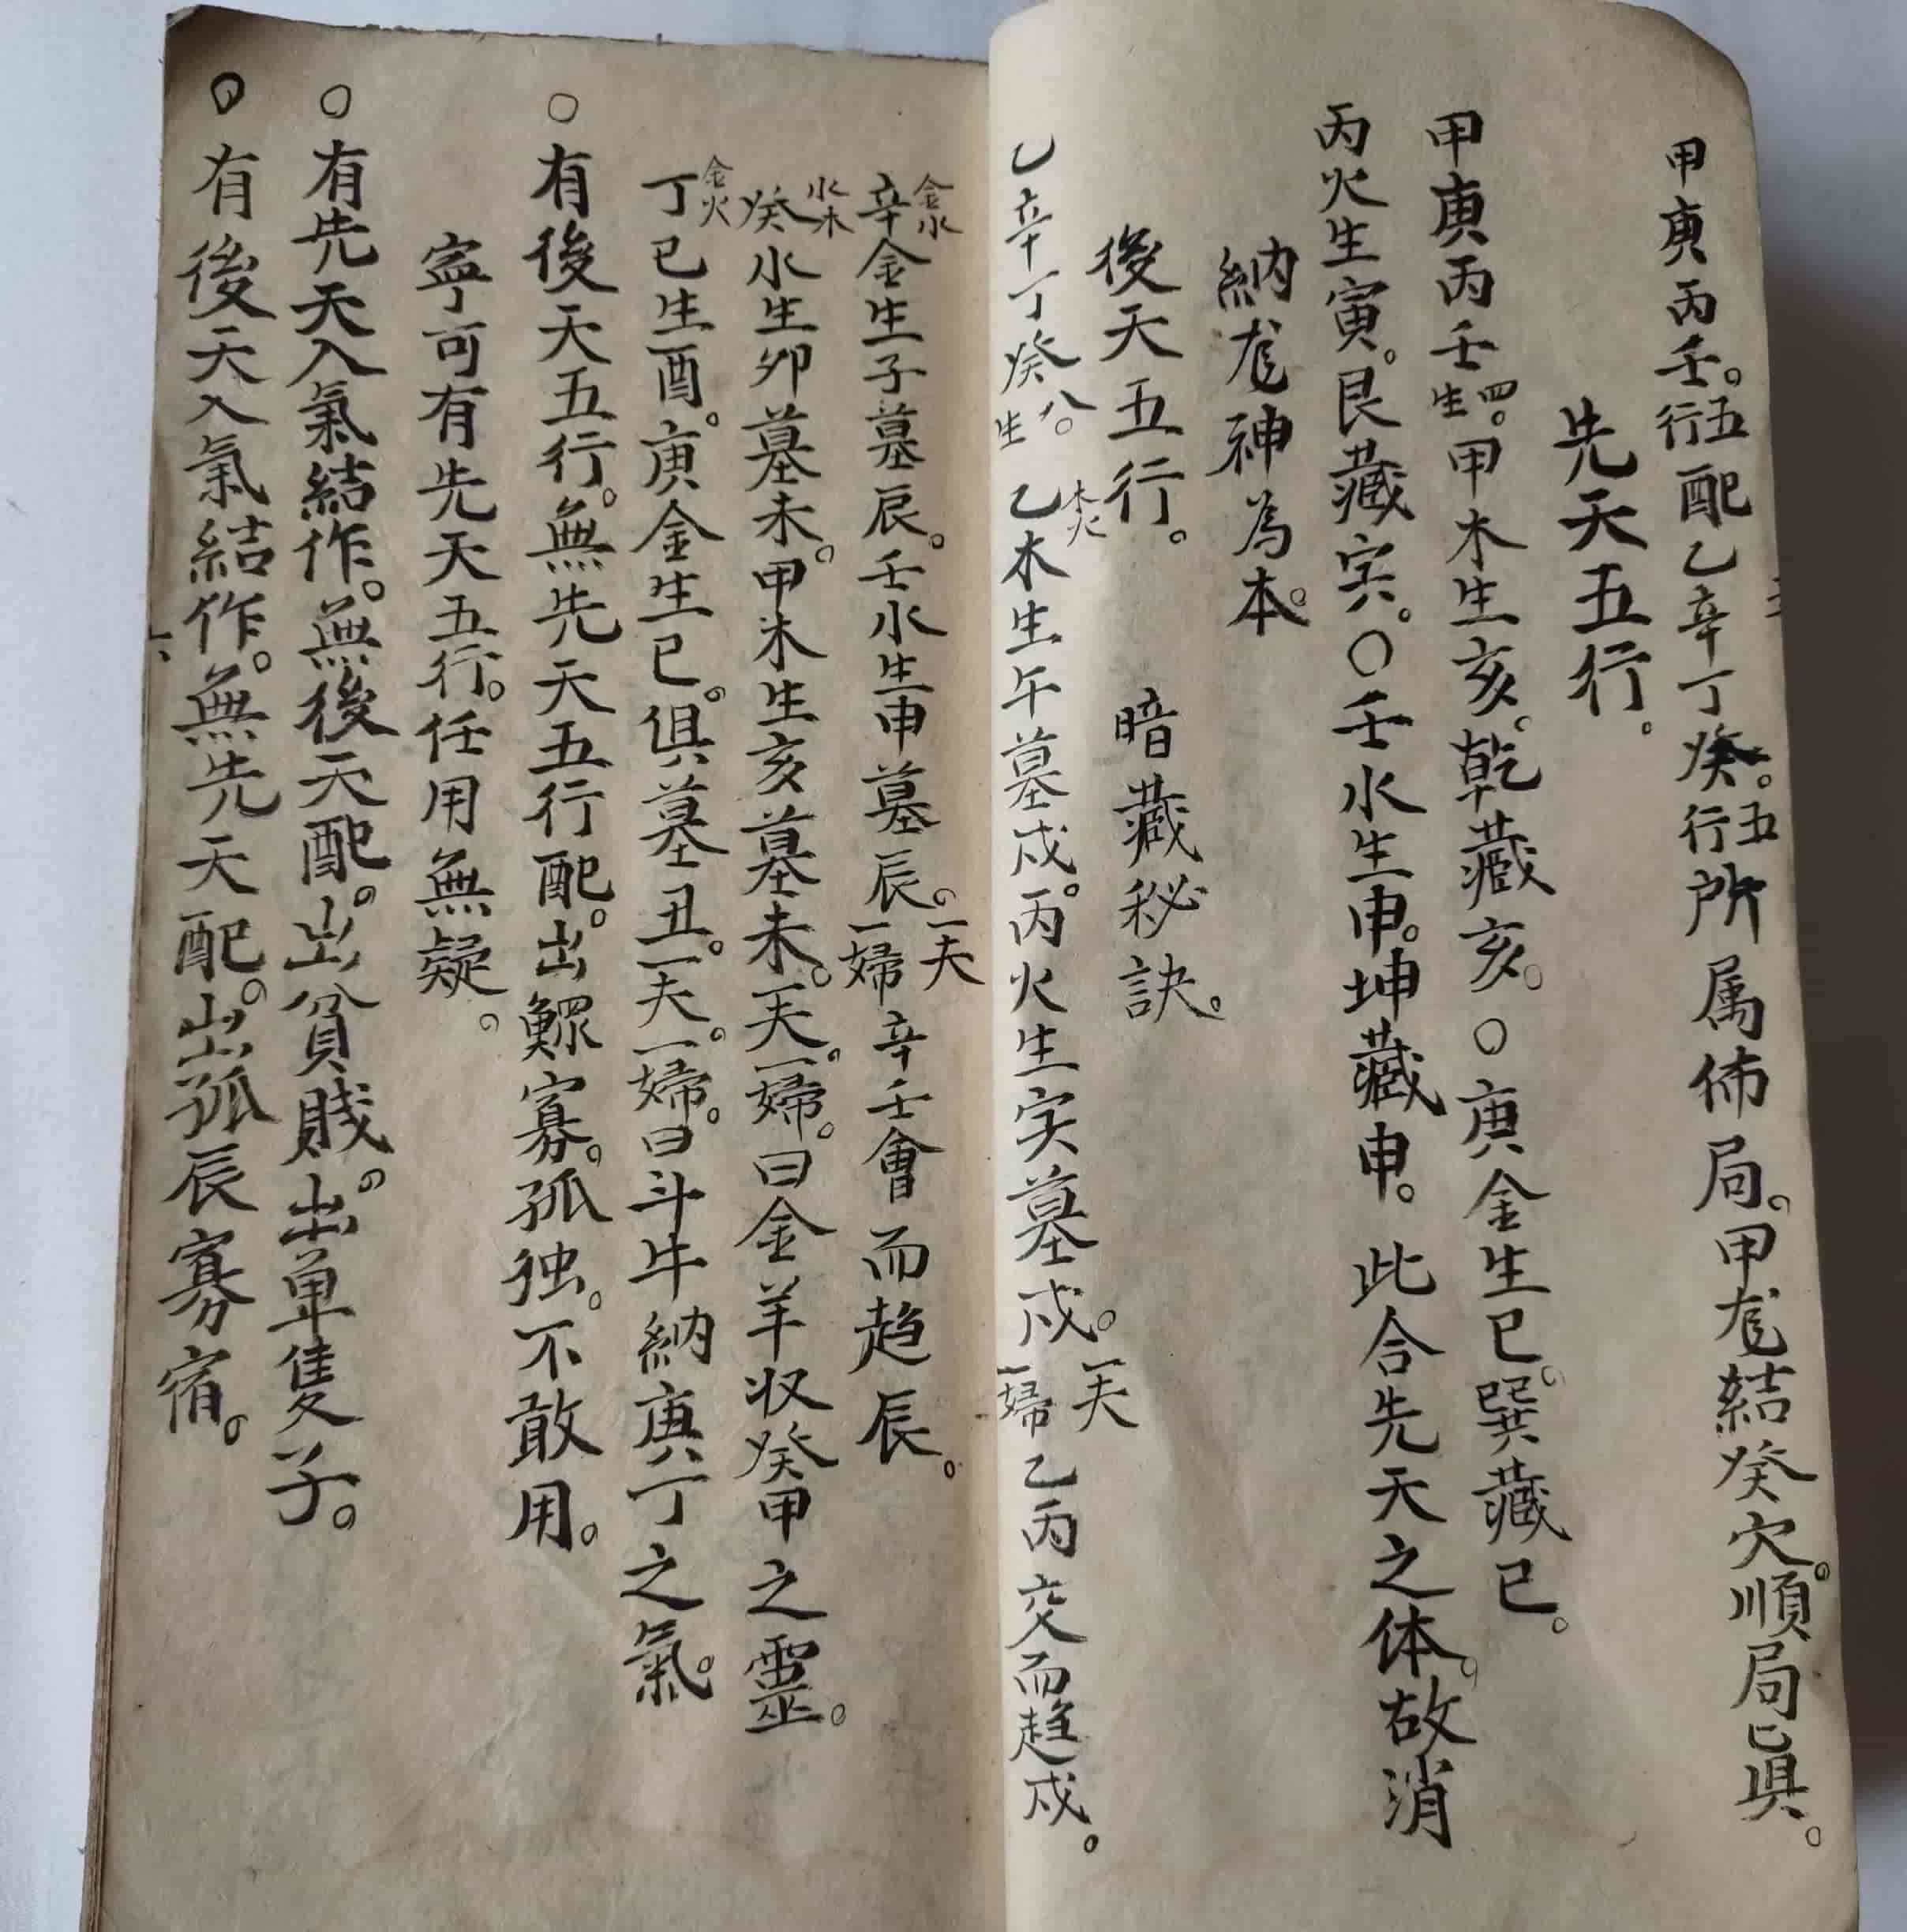 甲庚丙壬。五行配乙辛丁癸。五行所属佈局。甲尨結癸穴。順局已眞。
先天五行。
甲庚丙壬四生。甲木生亥。乾藏亥。〇庚金生巳。巽藏巳。
丙火生寅。艮藏寅。〇壬水生申。坤藏申。此合先天之体。故消
納尨神為本。
後天五行。暗藏秘訣。
乙辛丁癸八生。乙木木火生午墓戌。丙火生寅墓戌。一夫一婦乙丙交而趋戌。
辛金水金生子墓辰。壬水生申墓辰。一夫一婦辛壬會而趋辰。
癸水木水生卯墓未。甲木生亥墓未。一夫。一婦。曰金羊収癸甲之靈。
丁金火巳生酉。庚金生巳。俱墓丑。一夫。一婦。曰斗牛納庚丁之氣。
〇有後天五行。無先天五行配。出鰥寡。孤独。不敢用。
寧可有先天五行。任用無疑。
〇有先天入氣結作。無後天配。出貧賤。出单隻子。
〇有後天入氣結作。無先天配。出孤辰寡宿。